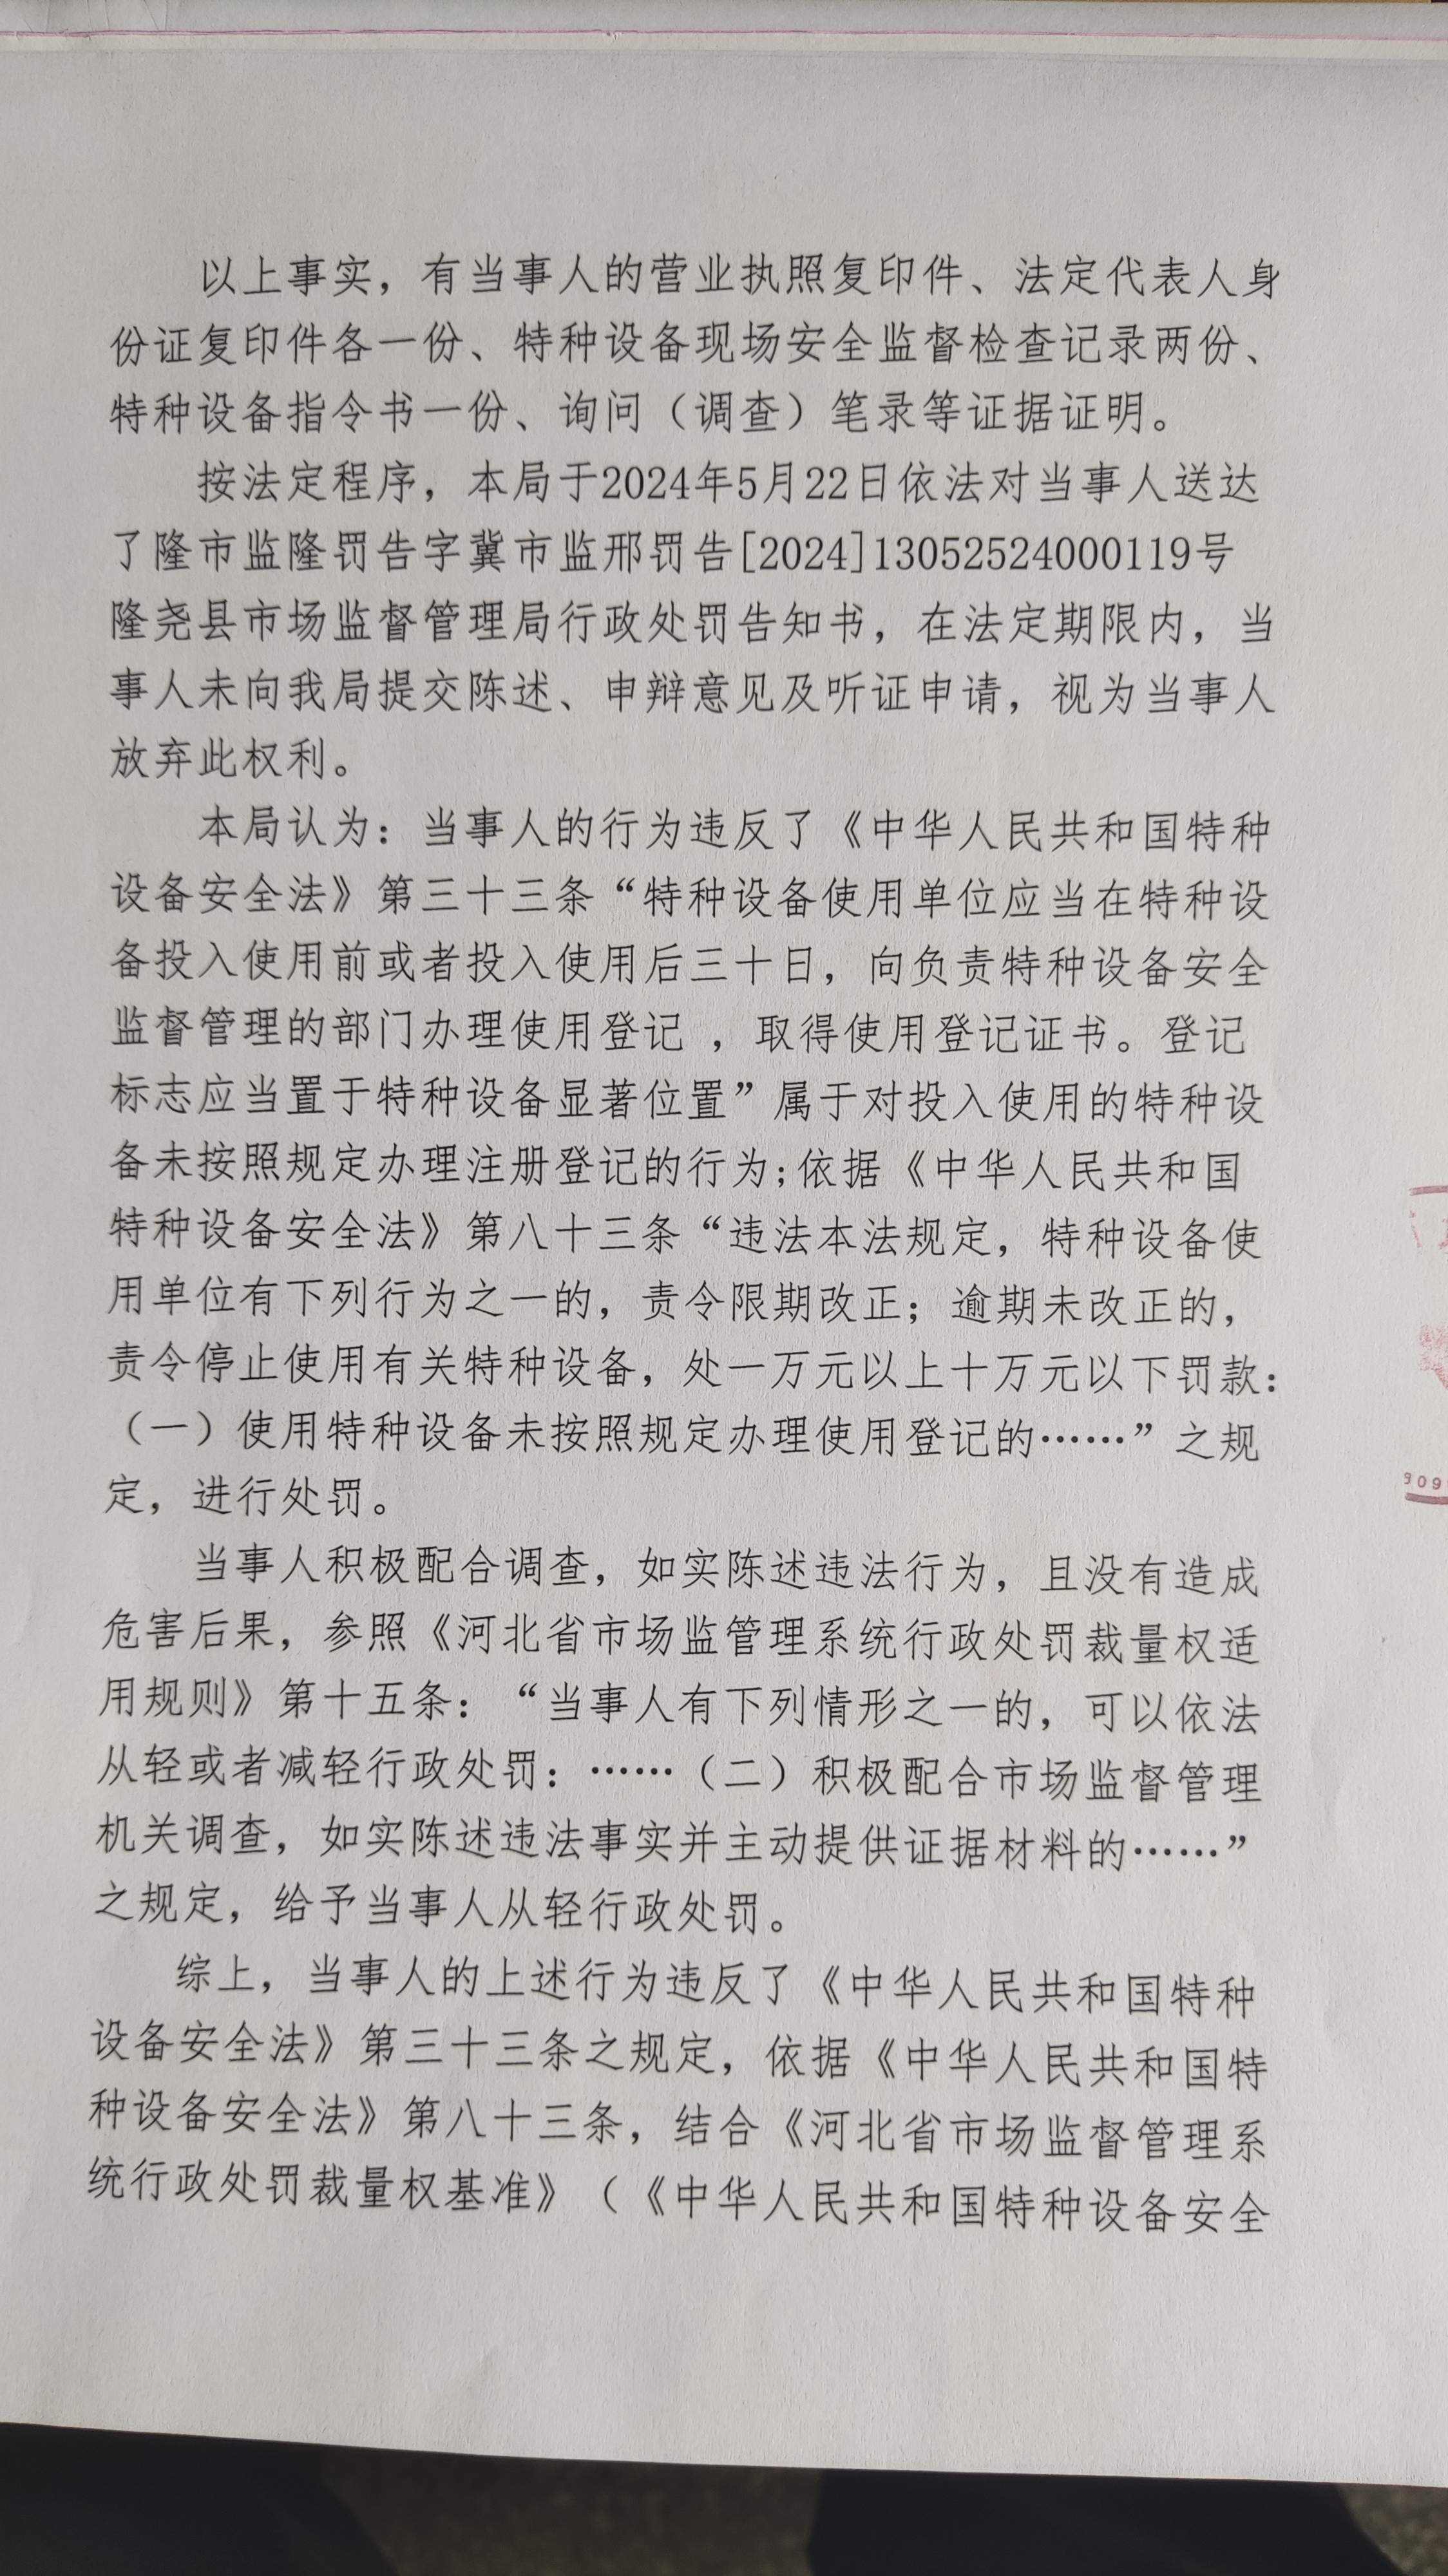 以上事实，有当事人的营业执照复印件、法定代表人身
份证复印件各一份、特种设备现场安全监督检查记录两份、
特种设备指令书一份、询问（调查）笔录等证据证明。
按法定程序，本局于2024年5月22日依法对当事人送达
了隆市监隆罚告字冀市监邢罚告[2024]13052524000119号
隆尧县市场监督管理局行政处罚告知书，在法定期限内，当
事人未向我局提交陈述、申辩意见及听证申请，视为当事人
放弃此权利。
本局认为：当事人的行为违反了《中华人民共和国特种
设备安全法》第三十三条“特种设备使用单位应当在特种设
备投入使用前或者投入使用后三十日，向负责特种设备安全
监督管理的部门办理使用登记 ，取得使用登记证书。登记
标志应当置于特种设备显著位置”属于对投入使用的特种设
备未按照规定办理注册登记的行为;依据《中华人民共和国
特种设备安全法》第八十三条“违法本法规定，特种设备使
用单位有下列行为之一的，责令限期改正；逾期未改正的，
责令停止使用有关特种设备，处一万元以上十万元以下罚款：
（一）使用特种设备未按照规定办理使用登记的……”之规
定，进行处罚。
当事人积极配合调查，如实陈述违法行为，且没有造成
危害后果，参照《河北省市场监管理系统行政处罚裁量权适
用规则》第十五条：“当事人有下列情形之一的，可以依法
从轻或者减轻行政处罚：……（二）积极配合市场监督管理
机关调查，如实陈述违法事实并主动提供证据材料的……”
之规定，给予当事人从轻行政处罚。
综上，当事人的上述行为违反了《中华人民共和国特种
设备安全法》第三十三条之规定，依据《中华人民共和国特
种设备安全法》第八十三条，结合《河北省市场监督管理系
统行政处罚裁量权基准》（《中华人民共和国特种设备安全